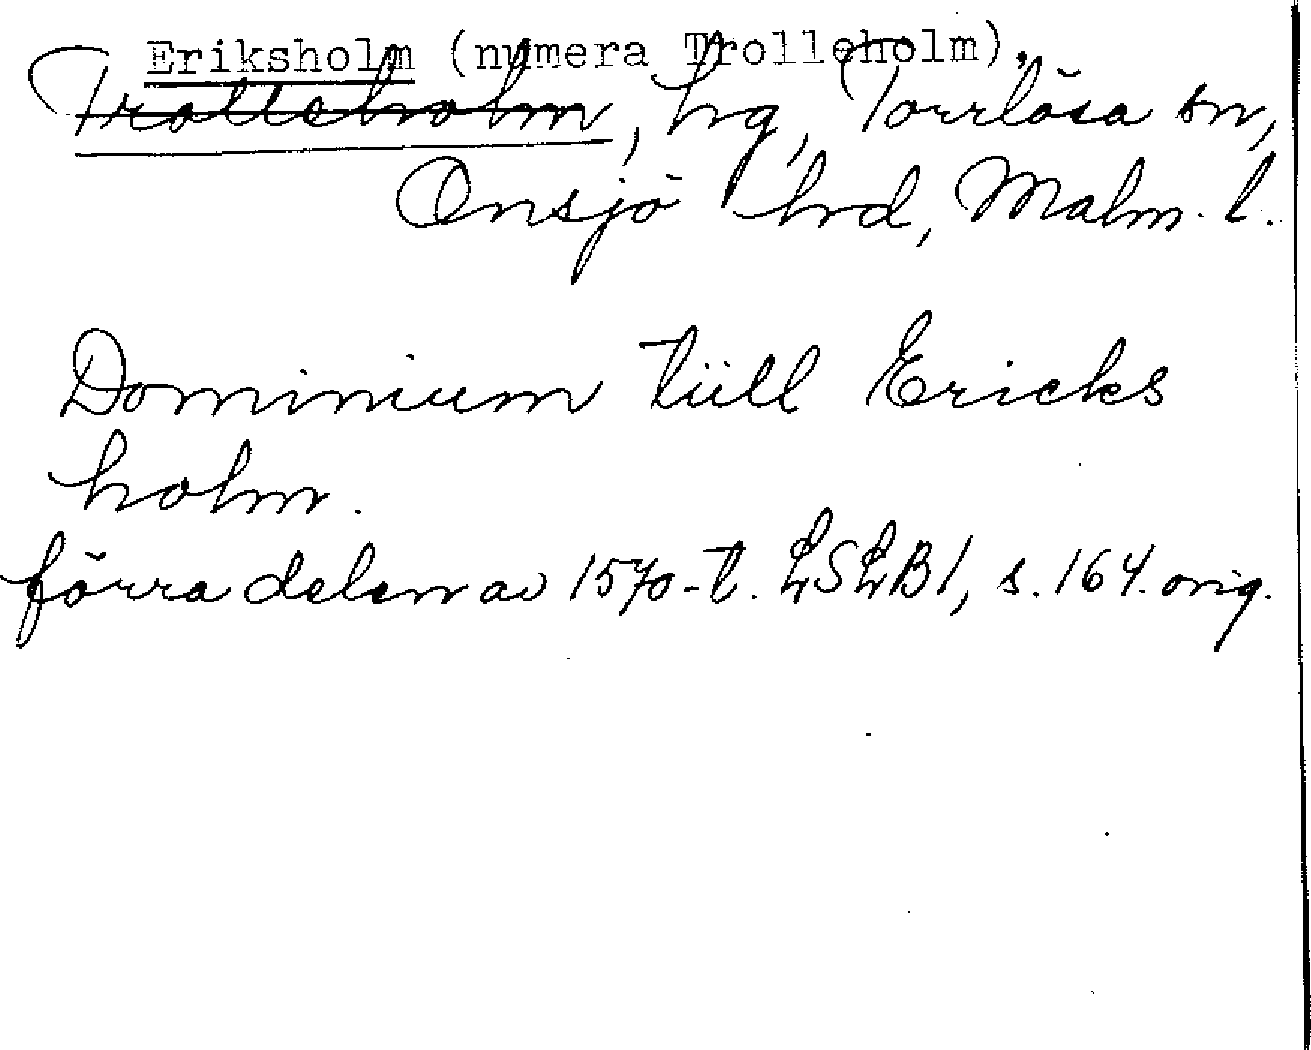 Eriksholm (numera Trolleholm).
Trolleholm, hg, Torrlösa sn,
Onsjö hrd, Malm. l.
Dominium tüll Ericks
holm.
förra delen av 1570-t. LSLB1, s. 164. orig.